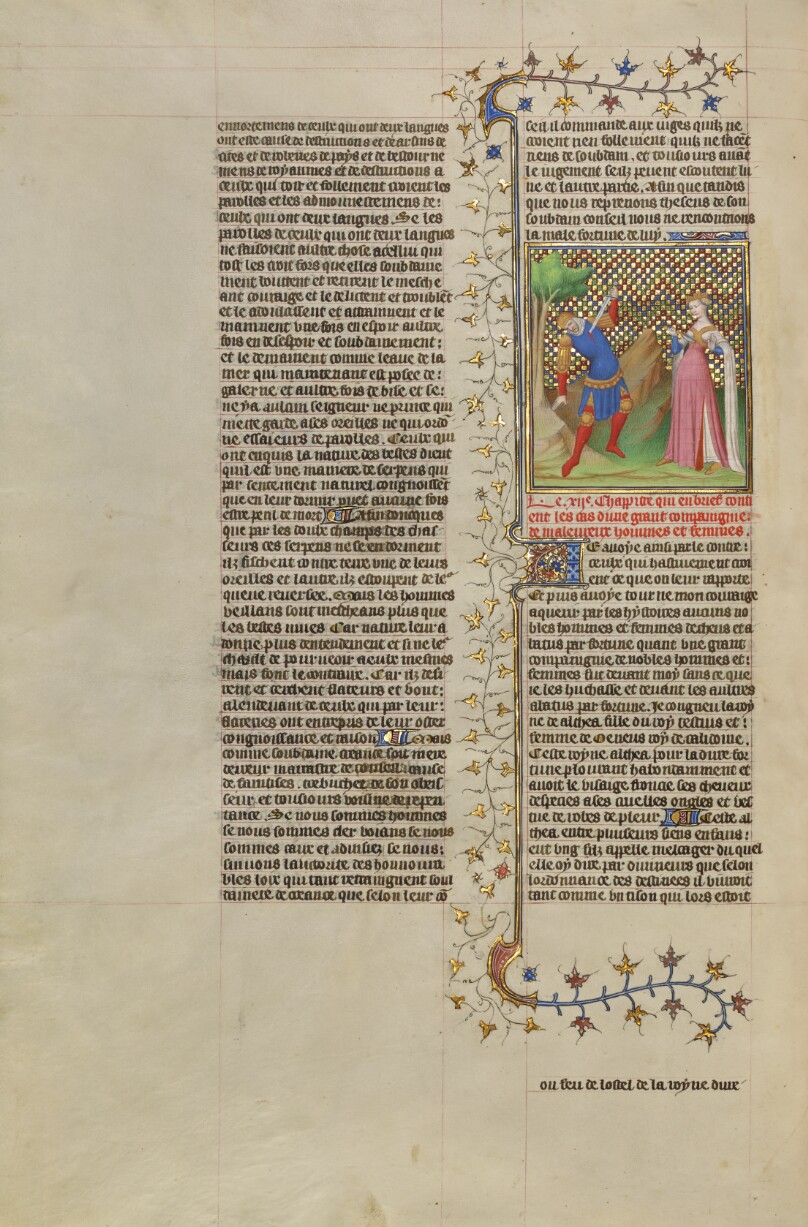 ennortemens de ceulx qui ont deux langues
ont este cause de destructions et de arsins de
cites et de violences de pays et de bestourne
mens de royaumes et de destructions a
ceulx qui tost et follement croient les
parolles et les admonnestemens de:
ceulx qui ont deux langues. Se les
parolles de ceulx qui ont deux langues
ne faisoient aultre chose a celluy qui
tost les croit fors que elles soubdaine
ment tournent et retirent le mesche
ant couraige et le delictent et troublent
et le adoulcissent et attrainnent et le
mainnent une fois en espoir aultre
fois en desespoir et soubdainement:
et le demainent comme leaue de la
mer qui maintenant est posee de:
galerne et aultre fois de bise et se:
ne y a aulcun seigneur ne prince qui
mette garde a ses oreilles ne qui ordon
ne essaieurs de parolles. Ceulx qui
ont enquis la nature des bestes dient
quil est une maniere de serpens qui
par sentement naturel congnoissent
que en leur dormir puet aucune fois
estre peril de mort Afin doncques
que par les doulx champs des chas
seurs ces serpens ne se endorment
ilz fischent contre terre une de leurs
oreilles et lautre ilz estoupent de le
queue reversee. Mais les hommes
veillans sont mescheans plus que
les bestes mues Car nature leur a
donne plus dentendement et si ne le
chault de pourveoir a eulx mesmes
mais font le contraire. Car ilz desi
rent et cerchent flateurs et bout:
alendevant de ceulx qui par leur:
flateries ont entrepris de leur oster
congnoissance et raison Mais
comme soubdaine creance soit mere
derreur marrastre de conseil cause
de famises. trebuchet de son obeis
seur et tousiours voisine de repen
tance. Se nous sommes hommes
se nous sommes cler voians se nous
sommes caux et advisiez se nous:
suivons lauctorite des honnoura
bles loix qui tant restraingnent soul
dainete de creance que selon leur con
seil il commande aux iuges quilz ne
croient peu follement quilz ne facent
riens de soubdain. et tousiours avant
le iugement seilz peuent escoutent lu
ne et lautre partie. Afin que tandis
que nous reprenons theseus de son
soubdain conseil nous ne rencontrions
la male fortune de luy.
Le .xije. Chappitre qui en brief conti
ent les cas dune grant compaignie:
de maleureux hommes et femmes.
Je avoye ainsi parle contre:
ceulx qui hastivement croi
ent ce que on leur rapporte
Et puis avoye tourne mon couraige
a querir par les hystoires aucuns no
bles hommes et femmes decheus et a
batus par fortune quant une grant
compaignie de nobles hommes et:
femmes fut devant moy sans ce que
ie les huchasse et devant les aultres
abatus par fortune. Je congneu la roy
ne de althea fille du roy testius et:
femme de Oeneus roy de calidonie.
Celle royne althea pour la dure for
tune plouroit habondamment et
avoit le visaige fronce ses cheveux
despecies a ses cruelles ongles et ves
tue de robes de pleur Ceste al
thea entre pluseurs siens enfans:
eut ung filz appelle meleager duquel
elle oy dire par devineurs que selon
lordonnance des destinees il vivroit
tant comme un tison qui lors estoit
ou feu de lostel de la royne dure